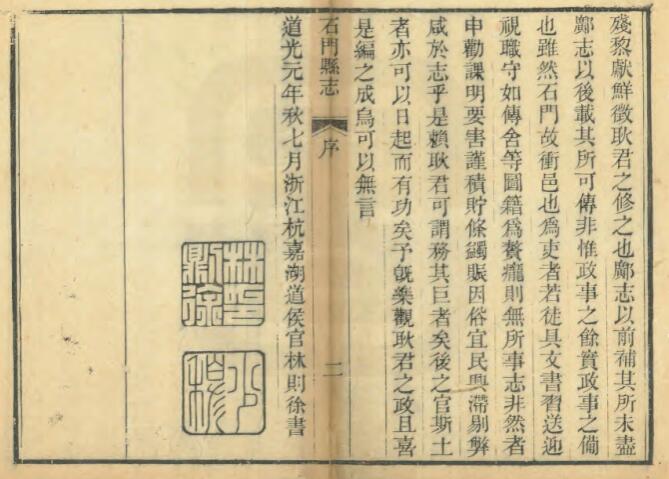 殘黎獻鮮徵耿君之修之也鄺志以前補其所未盡
鄺志以後載其所可傳非惟政事之餘實政事之備
也雖然石門故衝邑也爲吏者若徒具文書習送迎
視職守如傳舍等圖籍爲贅癰則無所事志非然者
申勸課明要害謹積貯條蠲賑因俗宜民興滯剔弊
咸於志乎是賴耿君可謂務其巨者矣後之官斯土
者亦可以日起而有功矣予旣樂觀耿君之政且喜
是編之成烏可以無言
石門縣志 序 二
道光元年秋七月浙江杭嘉湖道侯官林則徐書
林印則徐
少穆